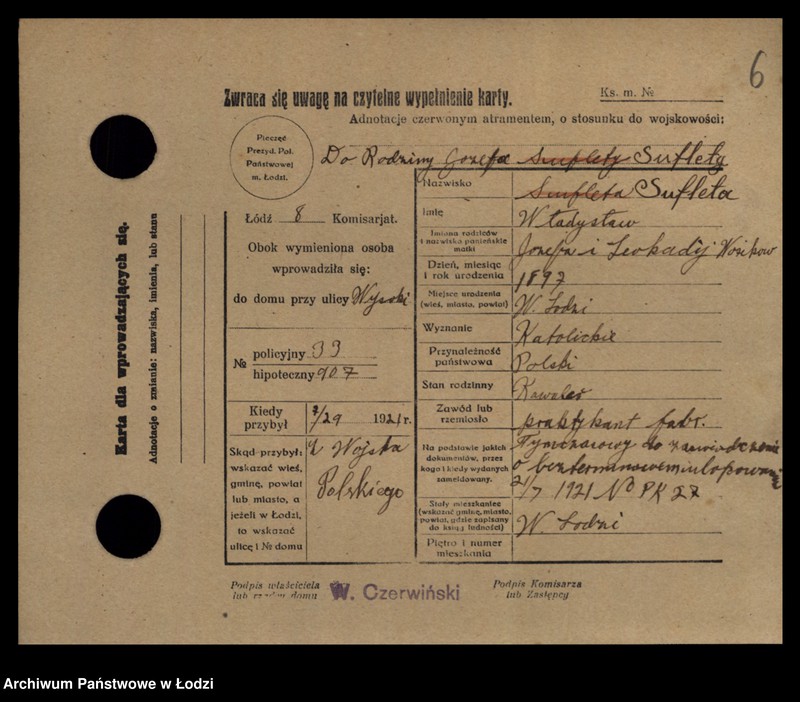 6
Zwraca się uwagę na czytelne wypełnienie karty.
Ks. m. №
Adnotacje czerwonym atramentem, o stosunku do wojskowości:
Pieczęć
Prezyd. Pol.
Państwowej
m. Łodzi.
Do Rodziny Jozefa Suflety
Łódź 8 Komisarjat.
Obok wymieniona osoba
wprowadziła się:
do domu przy ulicy Wysoki
№ policyjny 33
hipoteczny 907
Kiedy
przybył
7/29 1921 r.
Skąd przybył:
wskazać wieś,
gminę, powiat
lub miasto, a
jeżeli w Łodzi,
to wskazać
ulicę i № domu
z Wojska
Polskiego
Nazwisko
Sufleta
Imię
Władysław
Imiona rodziców
i nazwiska panieńskie
matki
Jozefa i Leokadÿ
Dzień, miesiąc
i rok urodzenia
1897
Miejsce urodzenia
(wieś, miasto, powiat)
W. Łodzi
Wyznanie
Katolickie
Przynależność
państwowa
Polski
Stan rodzinny
Kawaler
Zawód lub
rzemiosło
praktykant fabr.
Na podstawie jakich
dokumentów, przez
kogo i kiedy wydanych
zameldowany.
Tymczasowy do zaswiadczenie
o bezterminowem ulopowani
21/7 1921 № PK 27
Stały mieszkaniec
(wskazać gminę, miasto,
powiat, gdzie zapisany
do ksiąg ludności)
W. Łodzi
Piętro i numer
mieszkania
Podpis właściciela
lub rządcy domu
W. Czerwiński
Podpis Komisarza
lub Zastępcy
Karta dla wprowadzających się.
Adnotacje o zmianie: nazwiska, imienia, lub stanu
Archiwum Państwowe w Łodzi